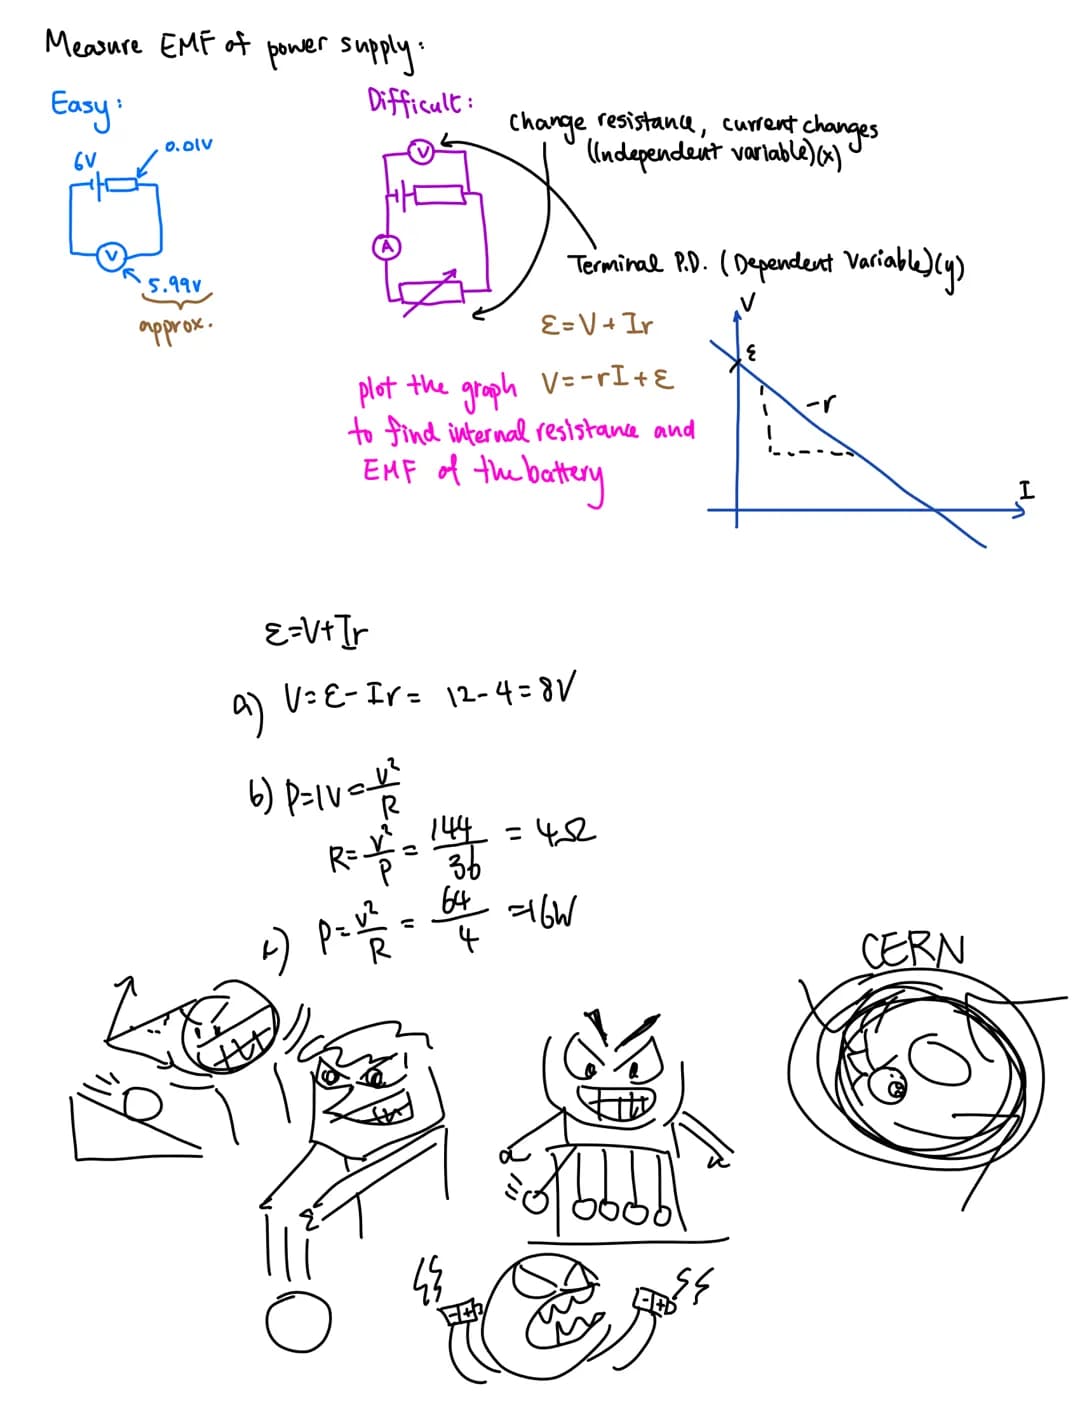 Measure EMF of power supply:
Easy:
6V
0.01V
V
5.99V
approx.
Difficult:
V
A
Change resistance, current changes
(Independent variable)(x)
Terminal P.D. (Dependent Variable)(y)
ε=V+Ir
plot the graph V=-rI+ε
to find internal resistance and
EMF of the battery
V
ε
-r
I
ε=V+Ir
a) V=ε-Ir= 12-4=8V
b) P=IV=V²/R
R=V²/P=144/36=4Ω
c) P=V²/R=64/4=16W
CERN
- +
- +